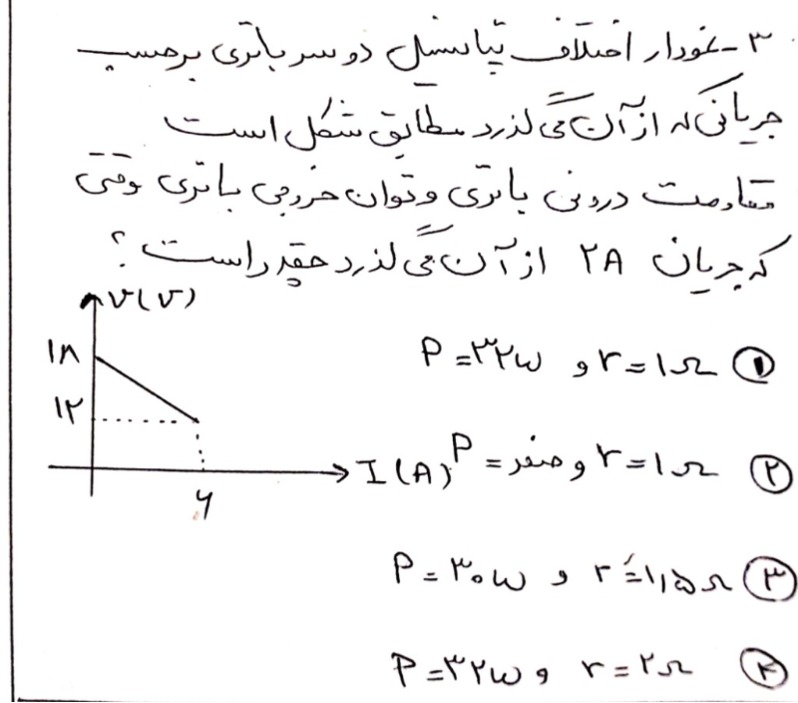 ۳- نمودار اختلاف پتانسیل دو سر باتری برحسب
جریانی که از آن می‌گذرد مطابق شکل است
مقاومت درونی باتری و توان خروجی باتری وقتی
که جریان ۲A از آن می‌گذرد چقدر است؟
V(V)
۱۸
۱۲
۶
I(A)
① r=۱Ω و P=۳۲W
② r=۱Ω و صفر=P
③ r=۱٫۵Ω و P=۳۰W
④ r=۲Ω و P=۳۲W